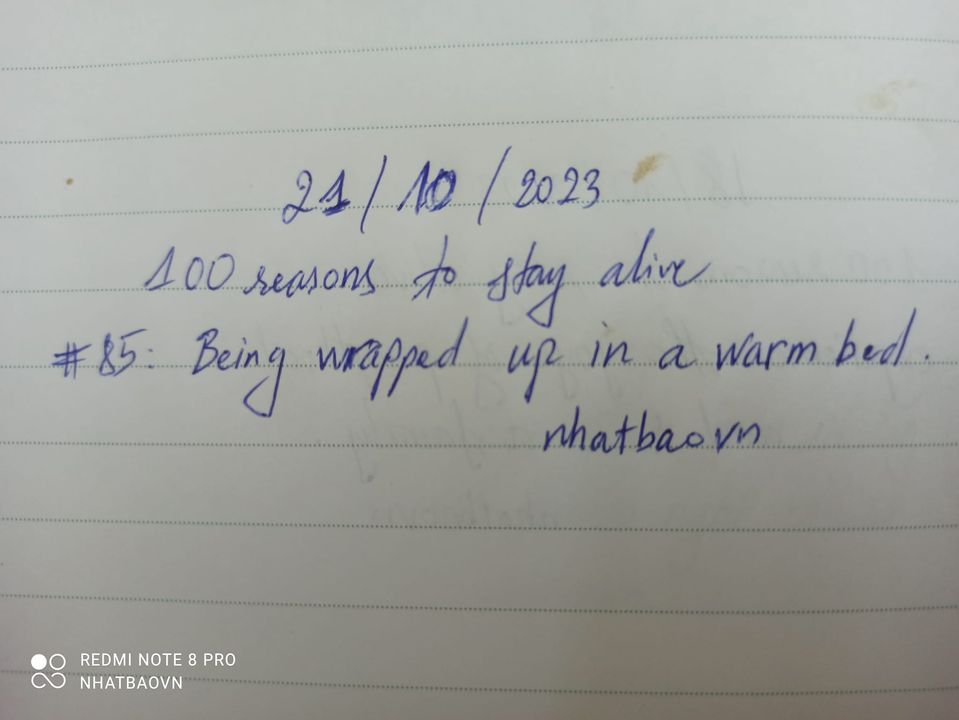 21/10/2023
100 reasons to stay alive
#85: Being wrapped up in a warm bed.
nhatbaovn
REDMI NOTE 8 PRO
NHATBAOVN